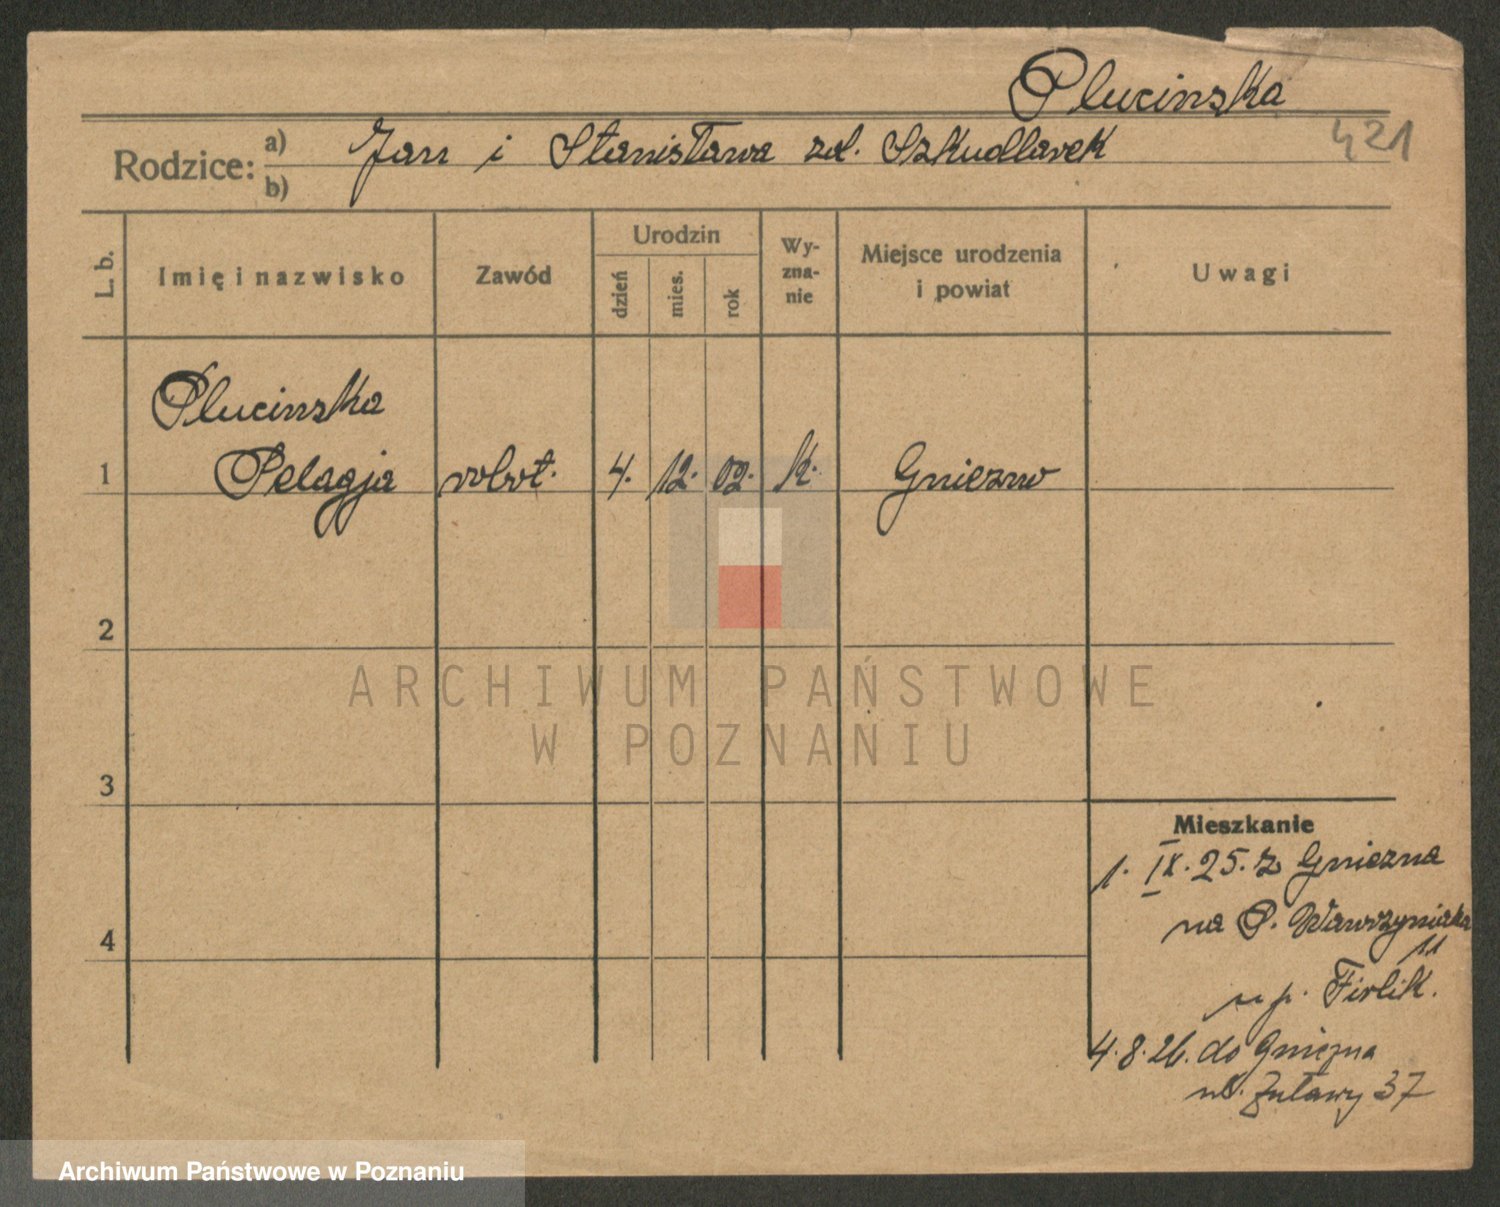 Plucinska
421
Rodzice: a) Jan i Stanisława zd. Szkudlarek
b)
L. b.
Imię i nazwisko
Zawód
Urodzin
dzień
mies.
rok
Wy-
zna-
nie
Miejsce urodzenia
i powiat
Uwagi
Plucinska
1 Pelagja robot. 4. 12. 02. k. Gniezno
2
3
4
Mieszkanie
1. IX. 25. z Gniezna
na P. Wawrzyniaka
11
u p. Firlik.
4.8.26. do Gniezna
ul. Żuławy 37
ARCHIWUM PAŃSTWOWE
W POZNANIU
Archiwum Państwowe w Poznaniu